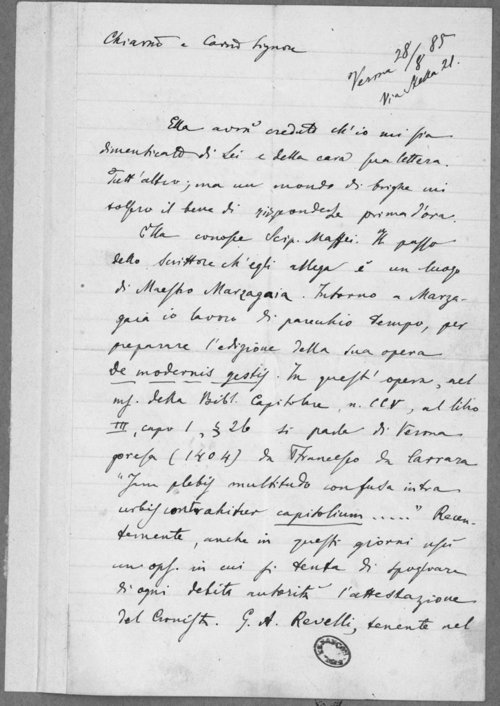 Chiarmo e Carmo Signore
Verona 28/8 85
Via Stella 21.
Ella avrà creduto ch'io mi sia
dimenticato di Lei e della cara sua lettera.
Tutt'altro; ma un mondo di brighe mi
tolsero il bene di risponderLe prima d'ora.
Ella conosce Scip. Maffei. Il passo
dello scrittore ch'egli allega è un luogo
di Maestro Marzagaia. Intorno a Marza-
gaia io lavoro di parecchio tempo, per
preparare l'edizione della sua opera
de modernis gestis. In quest'opera, nel
ms. della Bibl. Capitolare, n. CCV, al libro
III, capo 1, § 26 si parla di Verona
presa (1404) da Francesco da Carrara
"Jam plebis multitudo confusa intra
urbis contrahitur capitolium ....." Recen-
temente, anche in questi giorni uscì
un ops. in cui si tenta di spogliare
di ogni debita autorità l'attestazione
del Cronista. G. A. Revelli, tenente nel